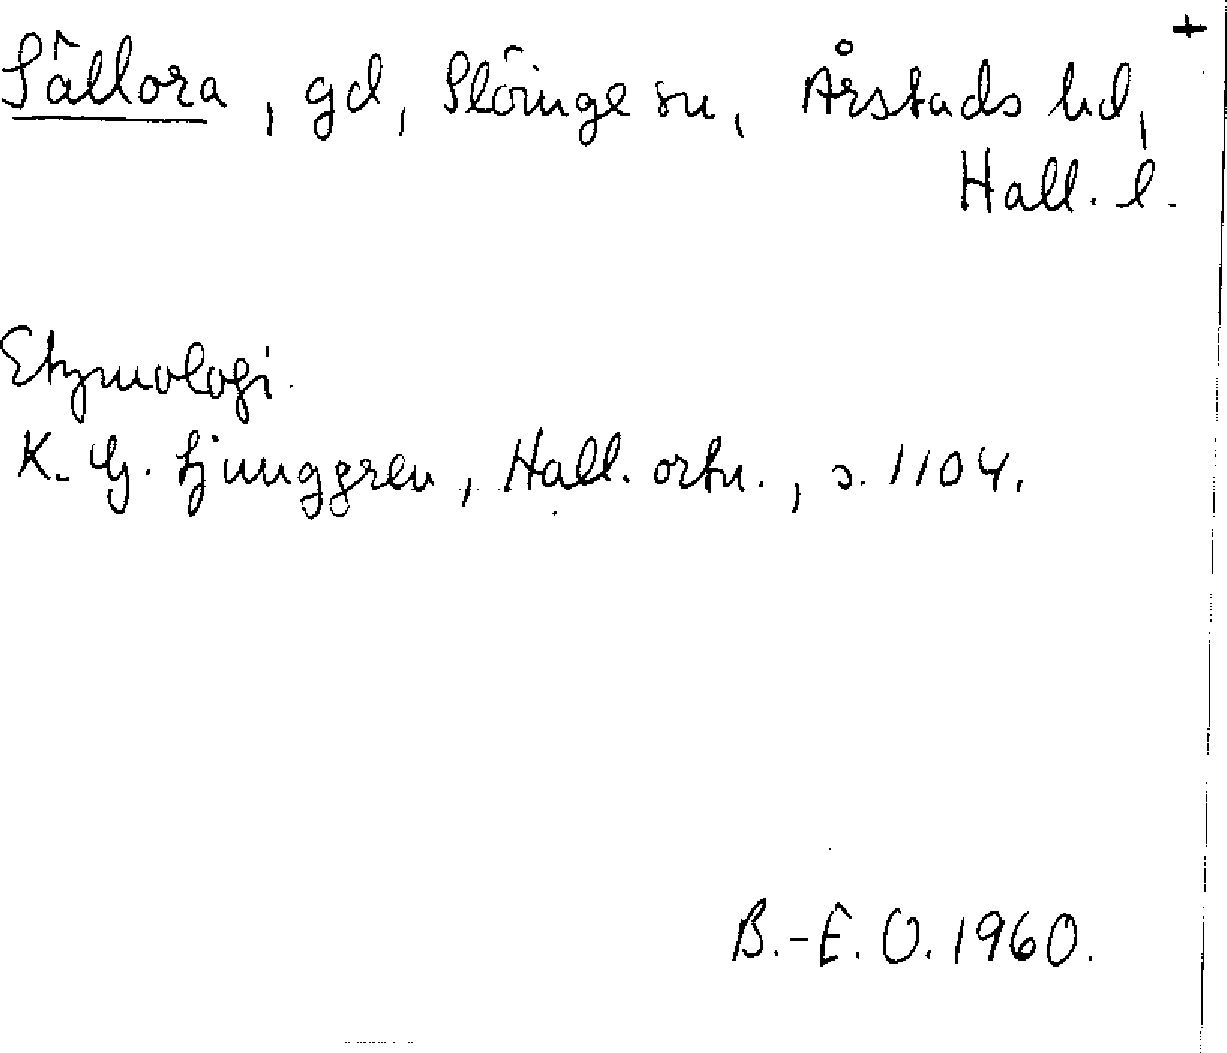 +
Sällora, gd, Slöinge sn, Årstads hd,
Hall. l.
Etymologi.
K. G. Ljunggren, Hall. ortn., s. 1104.
B.-E. O. 1960.